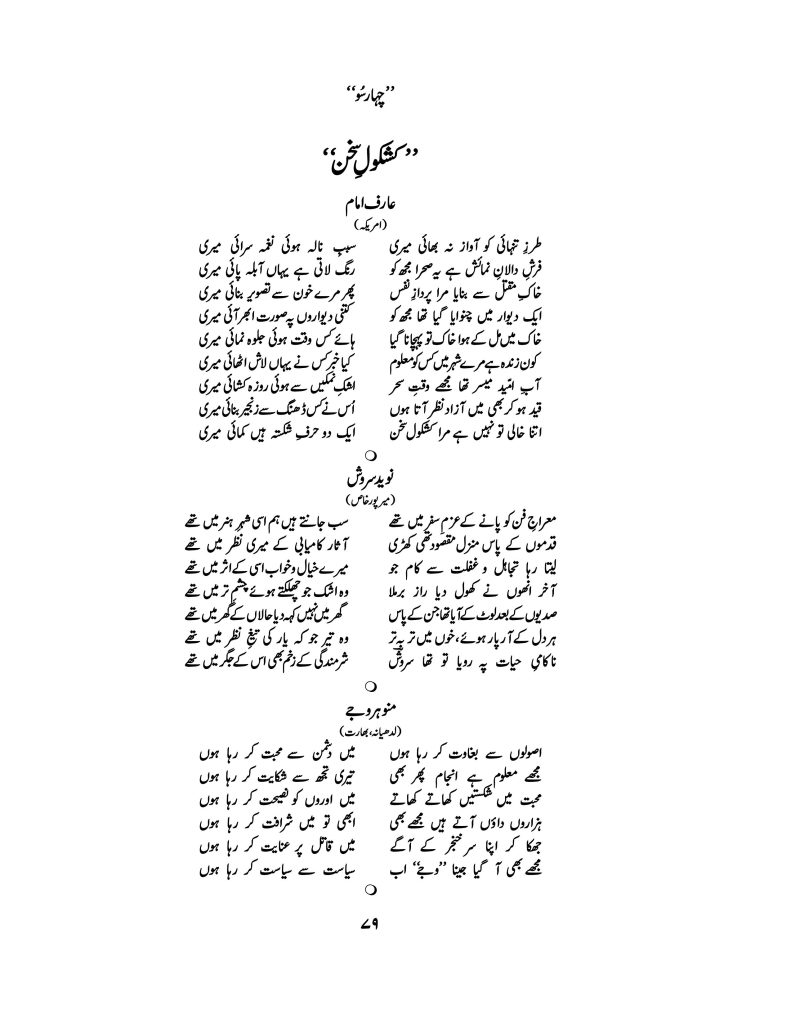 ”چہارسُو“
”کشکولِ سخن“
عارف امام
(امریکہ)
طرزِ تنہائی کو آواز نہ بھائی میری سببِ نالہ ہوئی نغمہ سرائی میری
فرشِ دالانِ نمائش ہے یہ صحرا مجھ کو رنگ لاتی ہے یہاں آبلہ پائی میری
خاکِ مقتل سے بنایا مرا پردازِ نفس پھر مرے خون سے تصویر بنائی میری
ایک دیوار میں چنوایا گیا تھا مجھ کو کتنی دیواروں پہ صورت ابھر آئی میری
خاک میں مل کے ہوا خاک تو پہچانا گیا ہائے کس وقت ہوئی جلوہ نمائی میری
کون زندہ ہے مرے شہر میں کس کو معلوم کیا خبر کس نے یہاں لاش اٹھائی میری
آبِ امّید میسر تھا مجھے وقتِ سحر اشکِ نمکیں سے ہوئی روزہ کشائی میری
قید ہو کر بھی میں آزاد نظر آتا ہوں اُس نے کس ڈھنگ سے زنجیر بنائی میری
اتنا خالی تو نہیں ہے مرا کشکولِ سخن ایک دو حرفِ شکستہ ہیں کمائی میری
نوید سروش
(میرپورخاص)
معراجِ فن کو پانے کے عزمِ سفر میں تھے سب جانتے ہیں ہم اسی شہرِ ہنر میں تھے
قدموں کے پاس منزلِ مقصود تھی کھڑی آثار کامیابی کے میری نظر میں تھے
لیتا رہا تجاہل و غفلت سے کام جو میرے خیال و خواب اسی کے اثر میں تھے
آخر انھوں نے کھول دیا راز برملا وہ اشک جو چھلکتے ہوئے چشمِ تر میں تھے
صدیوں کے بعد لوٹ کے آیا تھا جن کے پاس گھر میں نہیں کہہ دیا حالاں کے گھر میں تھے
ہر دل کے آر پار ہوئے، خوں میں تر بہ تر وہ تیر جو کہ یار کی تیغِ نظر میں تھے
ناکامیِ حیات پہ رویا تو تھا سروشؔ شرمندگی کے زخم بھی اس کے جگر میں تھے
منوہر وجے
(لدھیانہ، بھارت)
اصولوں سے بغاوت کر رہا ہوں میں دشمن سے محبت کر رہا ہوں
مجھے معلوم ہے انجام پھر بھی تیری تجھ سے شکایت کر رہا ہوں
محبت میں شکستیں کھاتے کھاتے میں اوروں کو نصیحت کر رہا ہوں
ہزاروں داؤں آتے ہیں مجھے بھی ابھی تو میں شرافت کر رہا ہوں
جھکا کر اپنا سر خنجر کے آگے میں قاتل پر عنایت کر رہا ہوں
مجھے بھی آ گیا جینا ”وجےؔ“ اب سیاست سے سیاست کر رہا ہوں
۷۹